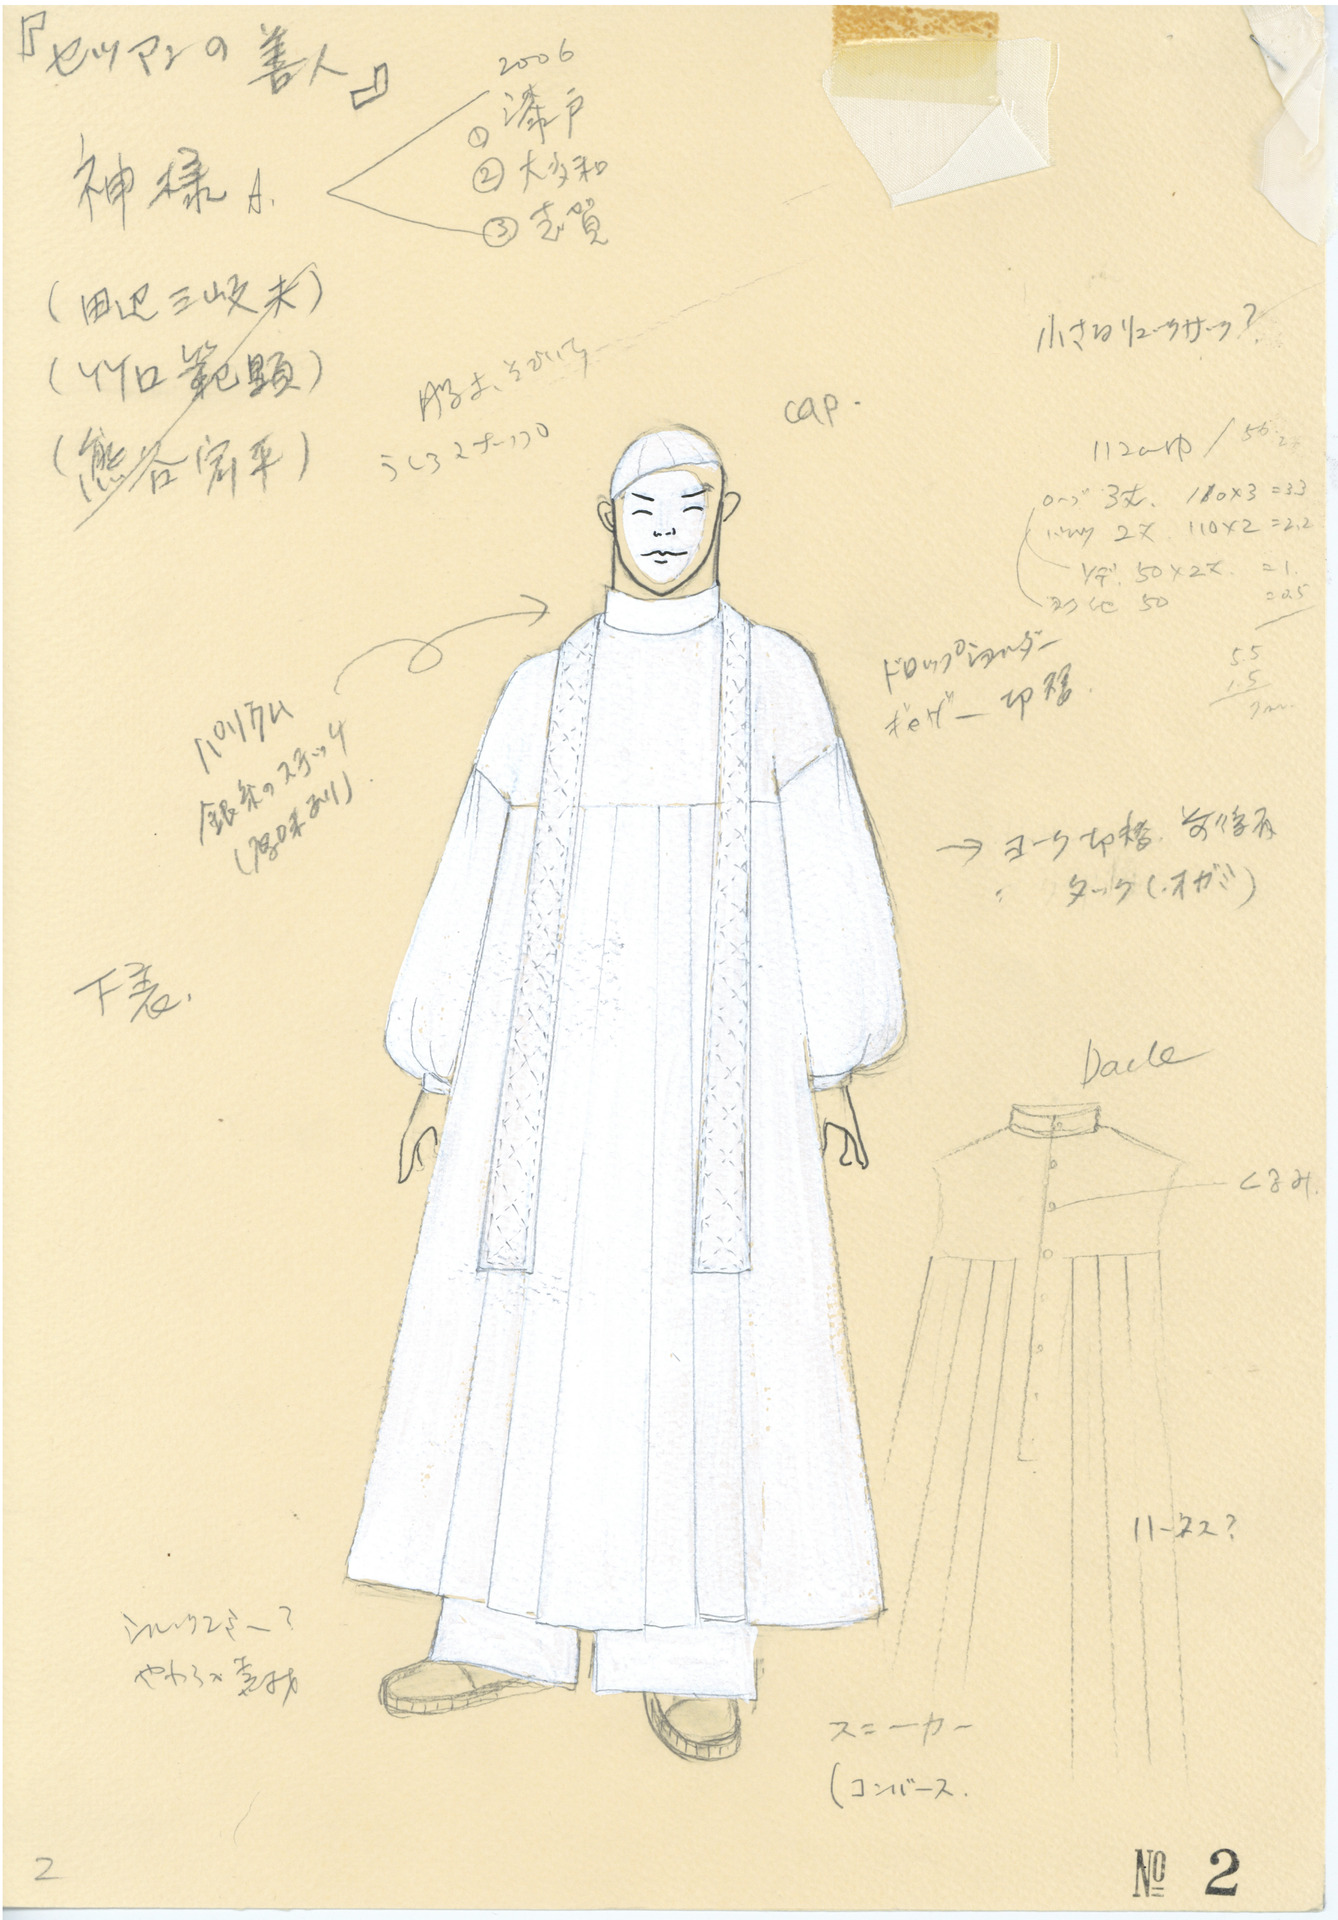 『セツアンの善人』
神様 A.
2006
① 漆戸
② 大多和
③ 志賀
(田辺三岐夫)
(川口範顕)
(熊谷宏平)
小さなリュックサック?
cap.
112cm巾 /
ローブ 3丈. 180×3 =3.3
2丈 110×2 =2.2
ソデ. 50×2丈. =1.
ヨーク 50 =0.5
5.5
1.5
ドロップショルダー
ギャザー切替.
パリウム
銀糸のステッチ
(厚味あり)
→ ヨーク切替. 前後有
タック(オガミ)
下表.
Back
くるみ.
ハーネス?
シルクスミー?
やわらか素材
スニーカー
(コンバース.
2
No 2